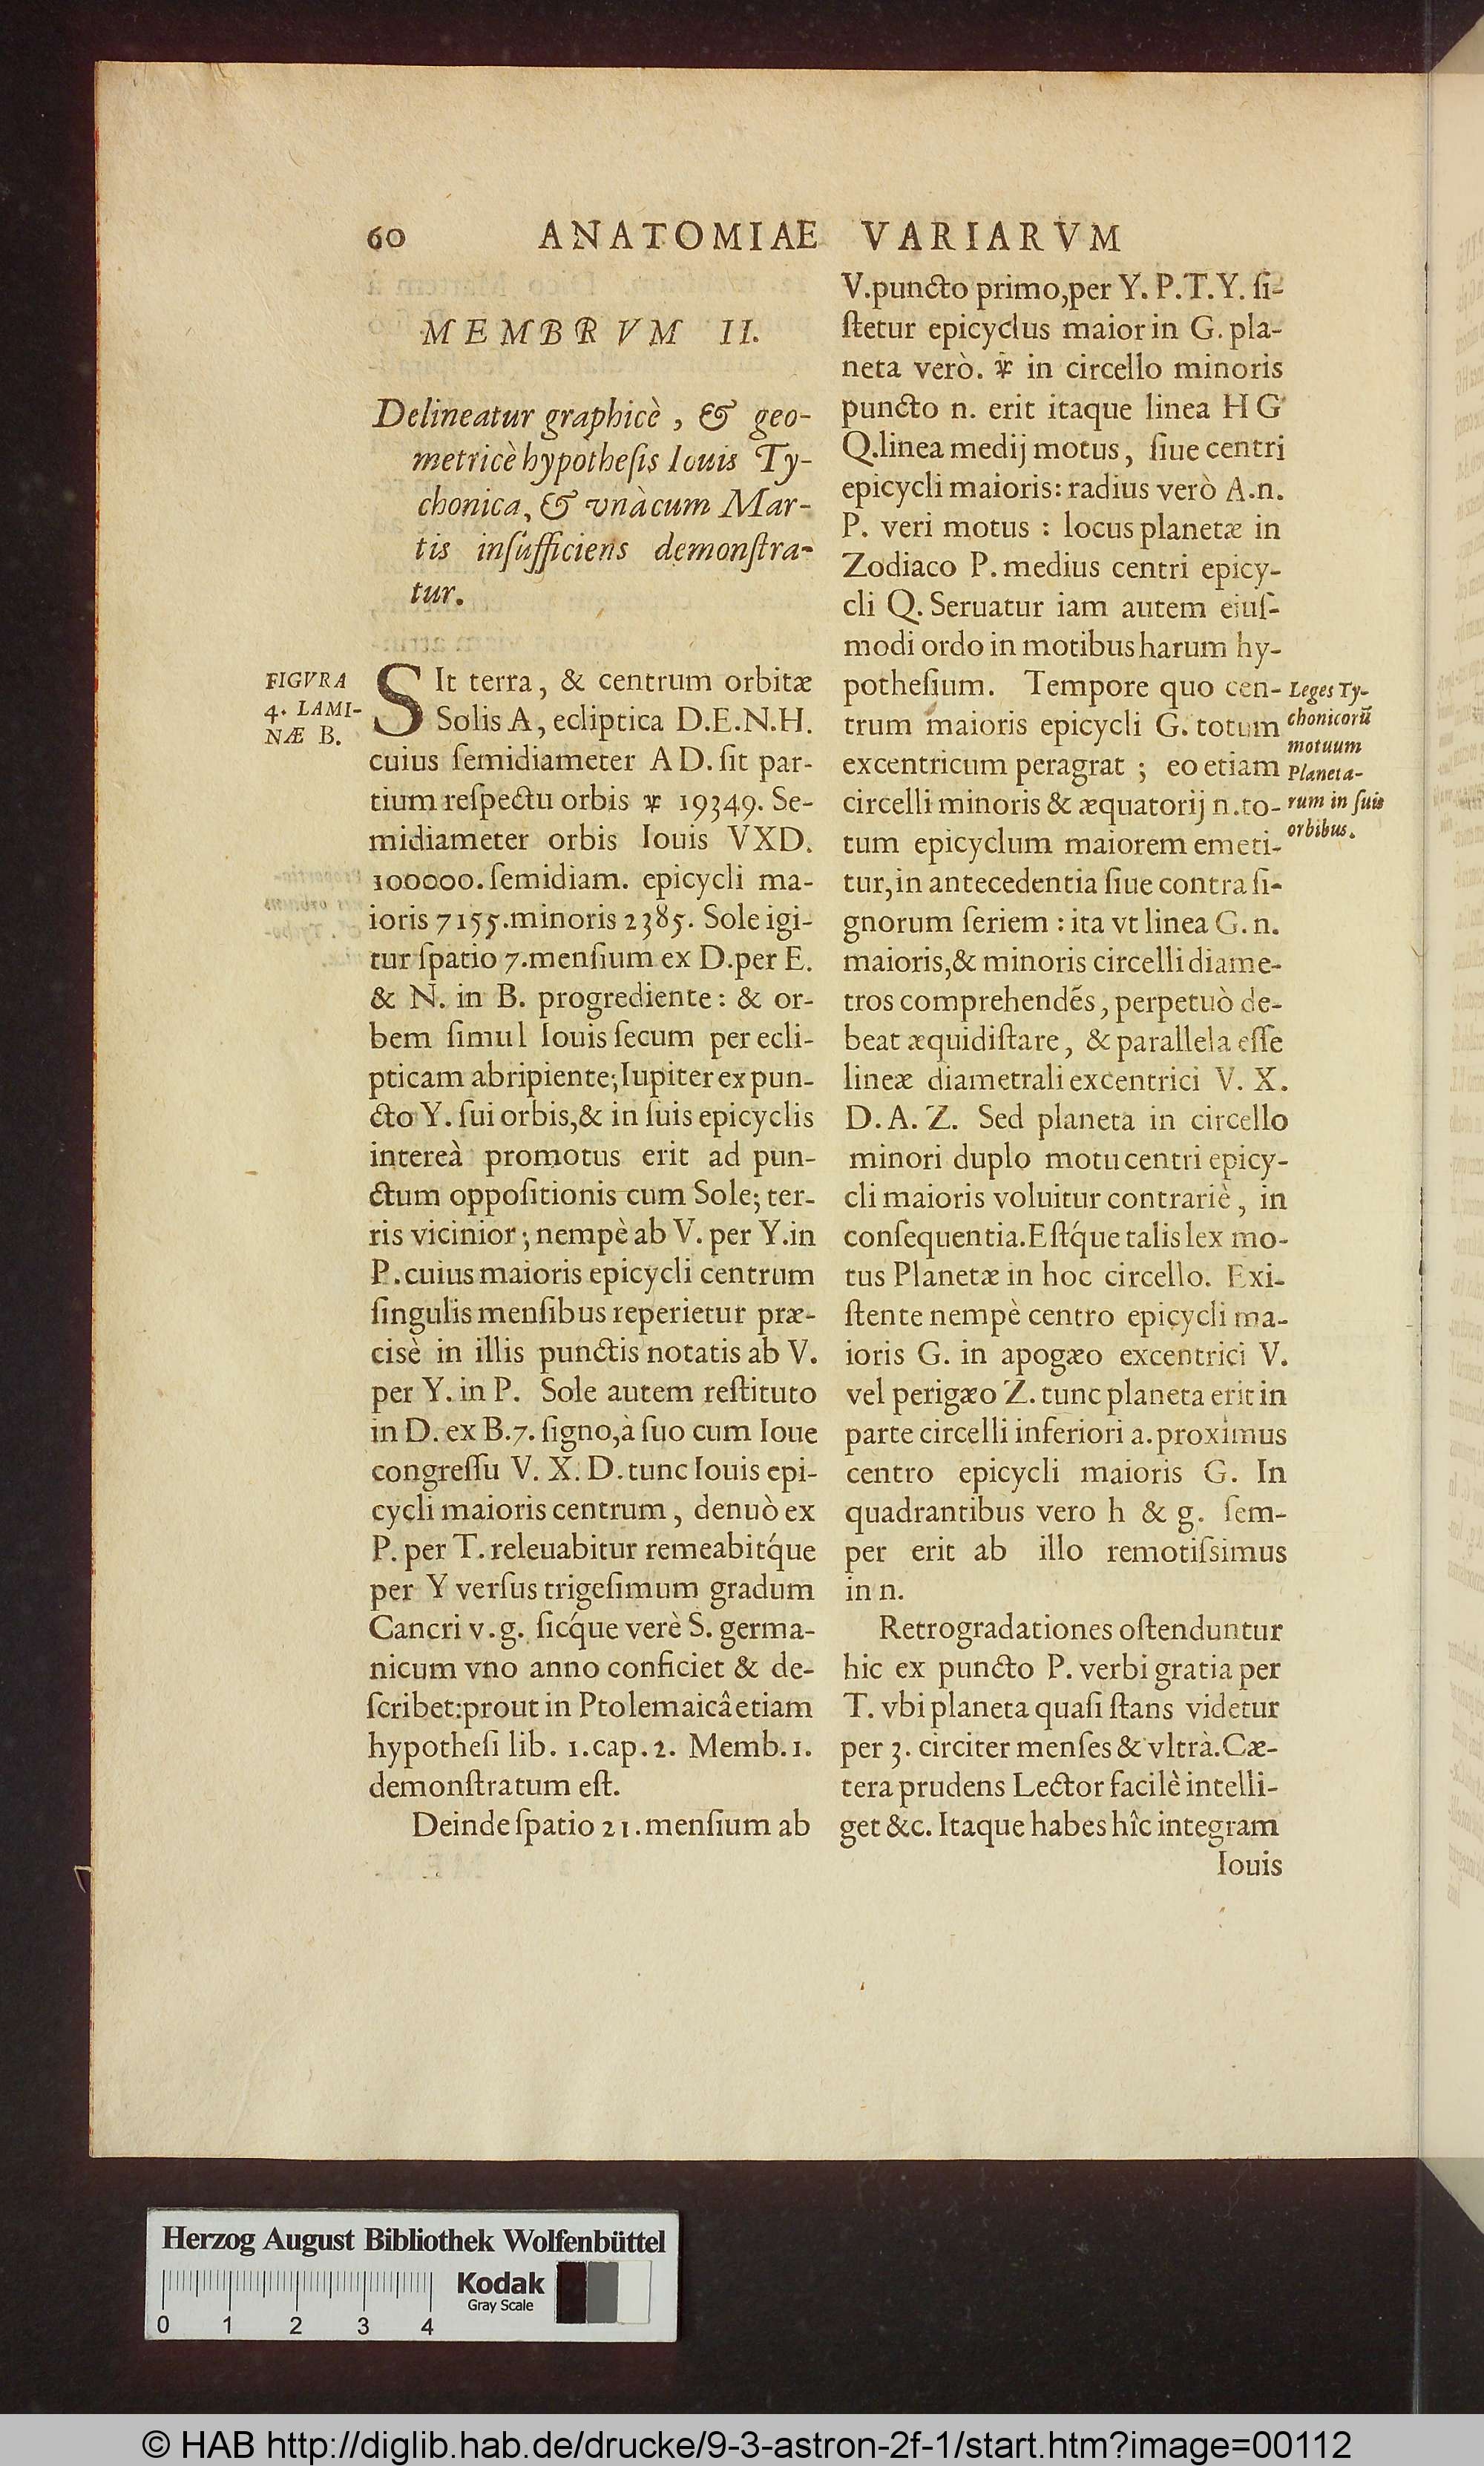 60 ANATOMIAE VARIARVM
MEMBRVM II.
Delineatur graphicè, & geo-
metricè hypotheſis Iouis Ty-
chonica, & vnàcum Mar-
tis inſufficiens demonſtra-
tur.
FIGVRA
4. LAMI-
NÆ B.
SIt terra, & centrum orbitæ
Solis A, ecliptica D.E.N.H.
cuius ſemidiameter A D. ſit par-
tium reſpectu orbis ♃ 19349. Se-
midiameter orbis Iouis VXD.
100000. ſemidiam. epicycli ma-
ioris 7155. minoris 2385. Sole igi-
tur ſpatio 7. menſium ex D. per E.
& N. in B. progrediente: & or-
bem ſimul Iouis ſecum per ecli-
pticam abripiente; Iupiter ex pun-
cto Y. ſui orbis, & in ſuis epicyclis
intereà promotus erit ad pun-
ctum oppoſitionis cum Sole; ter-
ris vicinior; nempè ab V. per Y. in
P. cuius maioris epicycli centrum
ſingulis menſibus reperietur præ-
cisè in illis punctis notatis ab V.
per Y. in P. Sole autem reſtituto
in D. ex B. 7. ſigno, à ſuo cum Ioue
congreſſu V. X. D. tunc Iouis epi-
cycli maioris centrum, denuò ex
P. per T. releuabitur remeabitq́ue
per Y verſus trigeſimum gradum
Cancri v. g. ſicq́ue verè S. germa-
nicum vno anno conficiet & de-
ſcribet: prout in Ptolemaicâ etiam
hypotheſi lib. 1. cap. 2. Memb. 1.
demonſtratum eſt.
Deinde ſpatio 21. menſium ab
V. puncto primo, per Y. P. T. Y. ſi-
ſtetur epicyclus maior in G. pla-
neta verò. ♃ in circello minoris
puncto n. erit itaque linea H G
Q. linea medij motus, ſiue centri
epicycli maioris: radius verò A. n.
P. veri motus : locus planetæ in
Zodiaco P. medius centri epicy-
cli Q. Seruatur iam autem eiuſ-
modi ordo in motibus harum hy-
potheſium. Tempore quo cen-
trum maioris epicycli G. totum
excentricum peragrat ; eo etiam
circelli minoris & æquatorij n. to-
tum epicyclum maiorem emeti-
tur, in antecedentia ſiue contra ſi-
gnorum ſeriem : ita vt linea G. n.
maioris, & minoris circelli diame-
tros comprehendẽs, perpetuò de-
beat æquidiſtare, & parallela eſſe
lineæ diametrali excentrici V. X.
D. A. Z. Sed planeta in circello
minori duplo motu centri epicy-
cli maioris voluitur contrariè, in
conſequentia. Eſtq́ue talis lex mo-
tus Planetæ in hoc circello. Exi-
ſtente nempè centro epicycli ma-
ioris G. in apogæo excentrici V.
vel perigæo Z. tunc planeta erit in
parte circelli inferiori a. proximus
centro epicycli maioris G. In
quadrantibus vero h & g. ſem-
per erit ab illo remotiſsimus
in n.
Retrogradationes oſtenduntur
hic ex puncto P. verbi gratia per
T. vbi planeta quaſi ſtans videtur
per 3. circiter menſes & vltrà. Cæ-
tera prudens Lector facilè intelli-
get &c. Itaque habes hîc integram
Iouis
Leges Ty-
chonicorũ
motuum
Planeta-
rum in ſuis
orbibus.
Herzog August Bibliothek Wolfenbüttel
Kodak
Gray Scale
0 1 2 3 4
© HAB http://diglib.hab.de/drucke/9-3-astron-2f-1/start.htm?image=00112